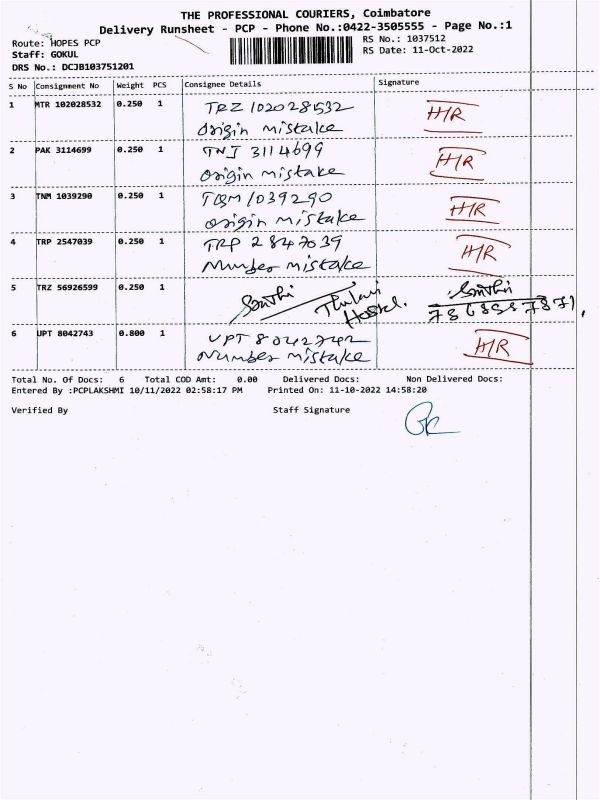 THE PROFESSIONAL COURIERS, Coimbatore
Delivery Runsheet - PCP - Phone No.:0422-3505555 - Page No.:1
Route: HOPES PCP RS No.: 1037512
Staff: GOKUL RS Date: 11-Oct-2022
DRS No.: DCJB103751201
S No Consignment No Weight PCS Consignee Details Signature
1 MTR 102028532 0.250 1 TRZ 102028532 HR
Origin mistake
2 PAK 3114699 0.250 1 TNJ 3114699 HR
Origin mistake
3 TNM 1039290 0.250 1 TQM 1039290 HR
Origin mistake
4 TRP 2547039 0.250 1 TRP 2847039 HR
Number mistake
5 TRZ 56926599 0.250 1 Santhi Thulasi Santhi
Hostel.
6 UPT 8042743 0.800 1 UPT 8042742 HR
Number mistake
Total No. Of Docs: 6 Total COD Amt: 0.00 Delivered Docs: Non Delivered Docs:
Entered By :PCPLAKSHMI 10/11/2022 02:58:17 PM Printed On: 11-10-2022 14:58:20
Verified By Staff Signature